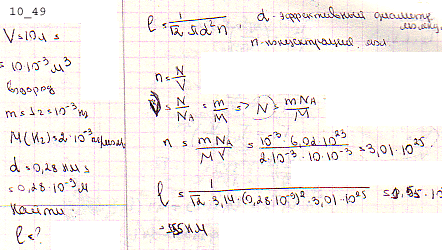 10_49
V = 10 л
= 10·10⁻³ м³
водород
m = 1 г = 10⁻³ кг
M(H₂) = 2·10⁻³
d = 0,28 нм
= 0,28·10⁻⁹ м
Найти:
l - ?
l = 1/(√2 πd²n), d - эффективный диаметр
n - концентрация
n = N/V
ν = N/N_A = m/M => N = mN_A/M
n = mN_A/(MV) = 10⁻³·6,02·10²³/(2·10⁻³·10·10⁻³) = 3,01·10²⁵
l = 1/(√2·3,14·(0,28·10⁻⁹)²·3,01·10²⁵)
нм